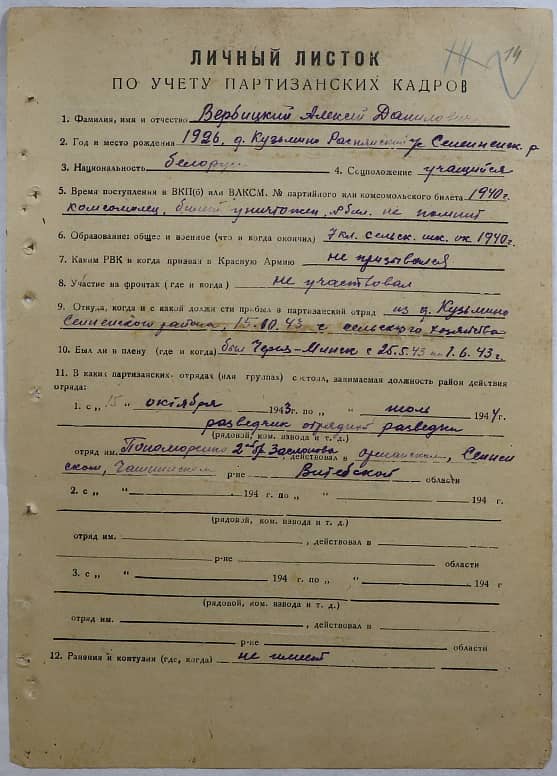 14
ЛИЧНЫЙ ЛИСТОК
ПО УЧЕТУ ПАРТИЗАНСКИХ КАДРОВ
1. Фамилия, имя и отчество Вербицкий Алексей Данилович
2. Год и место рождения 1926, д. Кузьмино Сеннинск. р
3. Национальность белорус 4. Соцположение учащийся
5. Время поступления в ВКП(б) или ВЛКСМ. № партийного или комсомольского билета 1940 г.
комсомолец, билет уничтожен, № бил. не помнит
6. Образование: общее и военное (что и когда окончил) 7 кл. сельск. шк. ок. 1940 г.
7. Каким РВК и когда призван в Красную Армию не призывался
8. Участие на фронтах (где и когда) не участвовал
9. Откуда, когда и с какой должности прибыл в партизанский отряд из д. Кузьмино
Сенненского района, 15.10.43 с сельского хозяйства
10. Был ли в плену (где и когда) был Минск с 25.5.43 по 1.6.43 г.
11. В каких партизанских отрядах (или группах) состоял, занимаемая должность район действия
отряда:
1. с „ 15 “ октября 1943 г. по „ “ июль 1944 г.
разведчик отрядной разведки
(рядовой, ком. взвода и т. д.)
отряд им. Пономаренко 2-я бр. Заслонова, действовал в Оршанском, Сеннен
ском, Чашникском р-не Витебской области
2. с „ “ 194 г. по „ “ 194 г.
(рядовой, ком. взвода и т. д.)
отряд им. , действовал в
р-не области
3. с „ “ 194 г. по „ “ 194 г
(рядовой, ком. взвода и т. д.)
отряд им. , действовал в
р-не области
12. Ранения и контузии (где, когда) не имеет